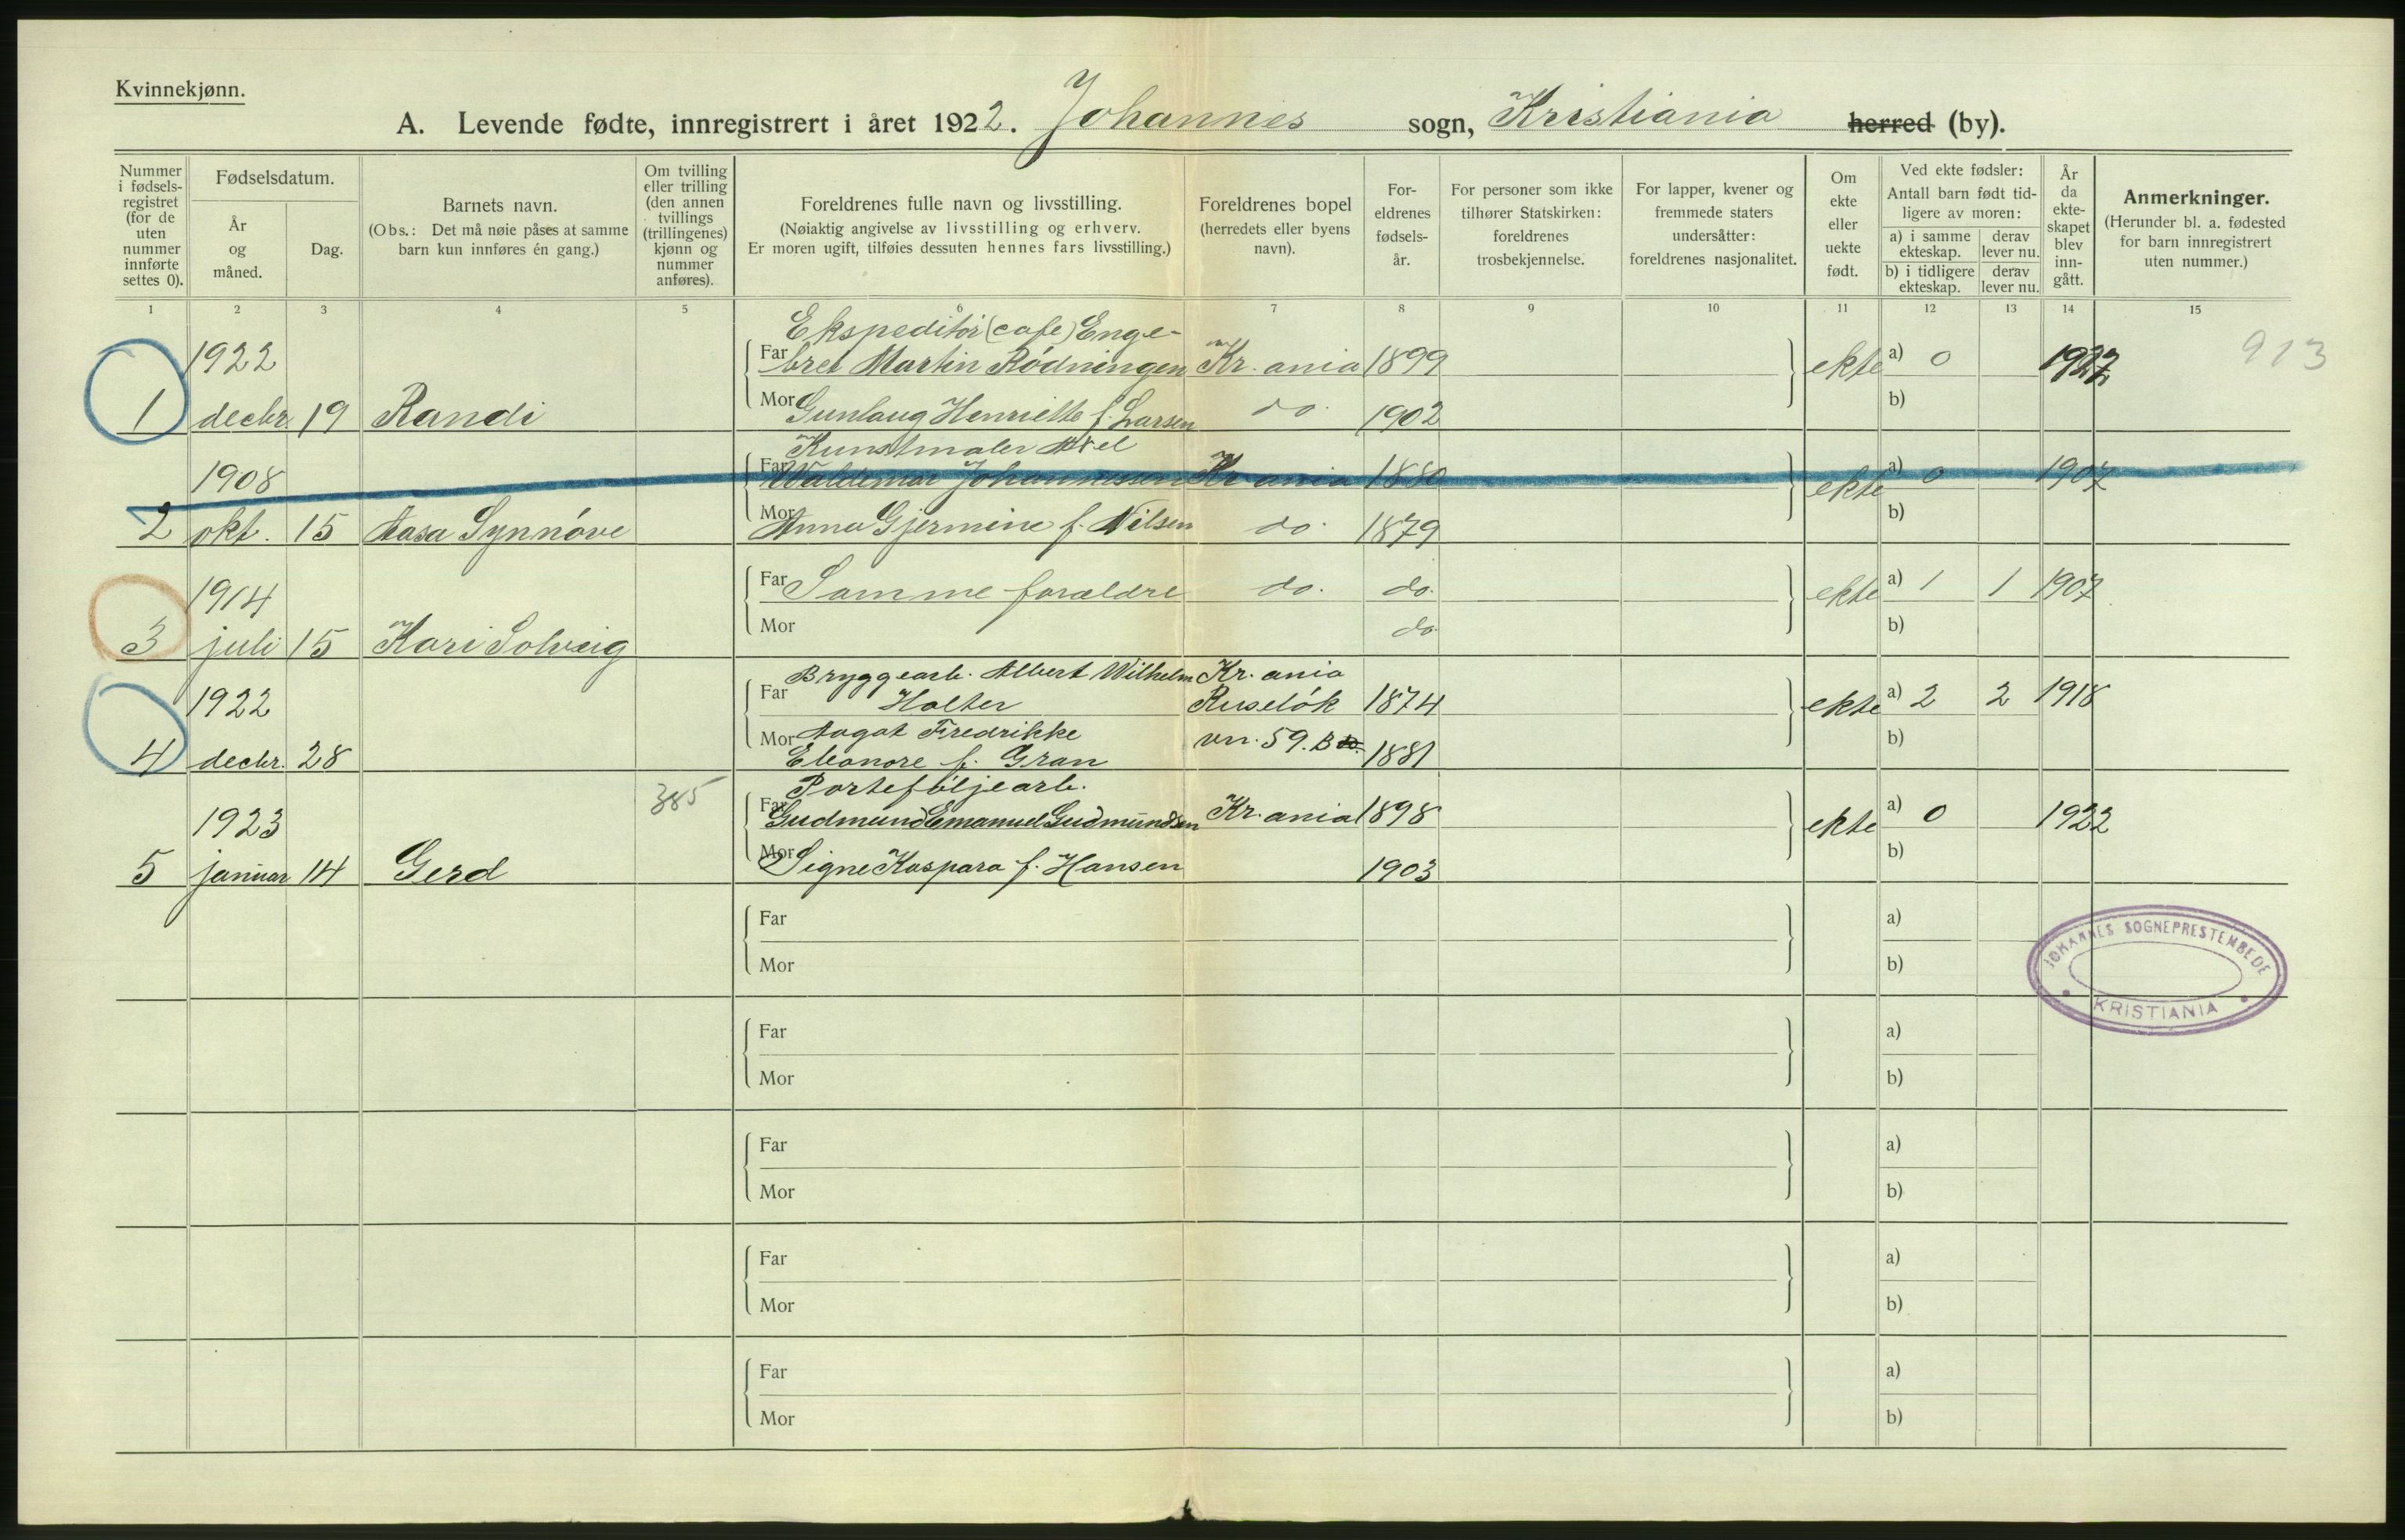 Kvinnekjønn.
A. Levende fødte, innregistrert i året 1922. Johannes sogn, Kristiania herred (by).
Nummer i fødsels-registret (for de uten nummer innførte settes 0).
Fødselsdatum.
År og måned.
Dag.
Barnets navn.
(Obs.: Det må nøie påses at samme barn kun innføres én gang.)
Om tvilling eller trilling (den annen tvillings (trillingenes) kjønn og nummer anføres).
Foreldrenes fulle navn og livsstilling.
(Nøiaktig angivelse av livsstilling og erhverv.
Er moren ugift, tilføies dessuten hennes fars livsstilling.)
Foreldrenes bopel
(herredets eller byens navn).
For-eldrenes fødsels-år.
For personer som ikke tilhører Statskirken: foreldrenes trosbekjennelse.
For lapper, kvener og fremmede staters undersåtter: foreldrenes nasjonalitet.
Om ekte eller uekte født.
Ved ekte fødsler: Antall barn født tid-ligere av moren:
a) i samme ekteskap.
derav lever nu.
b) i tidligere ekteskap.
derav lever nu.
År da ekte-skapet blev inn-gått.
Anmerkninger.
(Herunder bl. a. fødested for barn innregistrert uten nummer.)
1 2 3 4 5 6 7 8 9 10 11 12 13 14 15
Ekspeditör (cafe) Enge-
1922 Far bret Martin Rödningen Kr.ania 1899 ekte a) 0 1922 913
1 decbr. 19 Randi Mor Gunlaug Henriette f. Larsen do. 1902 b)
Kunstmaler Axel
1908 Far Waldemar Johannessen Kr ania 1880 ekte a) 0 1907
2 okt. 15 Aasa Synnöve Mor Anna Gjermine f. Nilsen do. 1879 b)
1914 Far Samme forældre do. do. ekte a) 1 1 1907
3 juli 15 Kari Solveig Mor do. b)
Bryggearb. Albert Wilhelm Kr. ania
1922 Far Holter Ruselök 1874 ekte a) 2 2 1918
Mor Aagot Fredrikke vn. 59. B do. b)
4 decbr. 28 Eleonore f. Gran 1881
385 Porteföljearb.
1923 Far Gudmund Emanuel Gudmundsen Kr. ania 1898 ekte a) 0 1922
5 januar 14 Gerd Mor Signe Kaspara f. Hansen 1903 b)
Far a)
Mor b)
JOHANNES SOGNEPRESTEMBEDE
KRISTIANIA
Far a)
Mor b)
Far a)
Mor b)
Far a)
Mor b)
Far a)
Mor b)